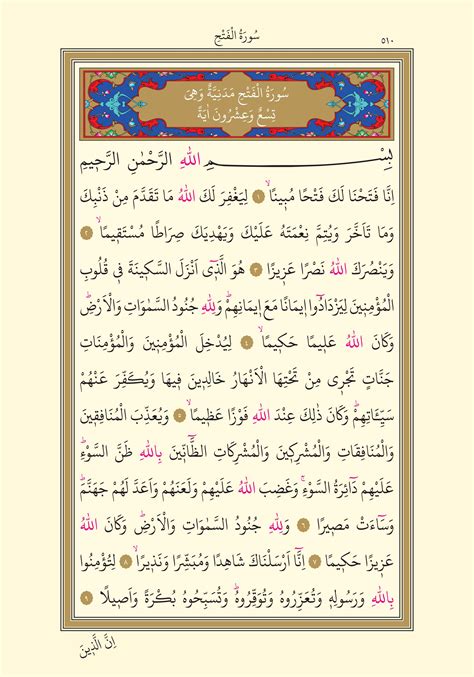 سُورَةُ الْفَتْحِ ٥١٠
سُورَةُ الْفَتْحِ مَدَنِيَّةٌ وَهِيَ
تِسْعٌ وَعِشْرُونَ اٰيَةً
بِسْمِ اللهِ الرَّحْمٰنِ الرَّحِيمِ
اِنَّا فَتَحْنَا لَكَ فَتْحًا مُبِينًاۙ ١ لِيَغْفِرَ لَكَ اللهُ مَا تَقَدَّمَ مِنْ ذَنْبِكَ
وَمَا تَاَخَّرَ وَيُتِمَّ نِعْمَتَهُ عَلَيْكَ وَيَهْدِيَكَ صِرَاطًا مُسْتَقِيمًاۙ ٢
وَيَنْصُرَكَ اللهُ نَصْرًا عَزِيزًا ٣ هُوَ الَّذ۪ٓي اَنْزَلَ السَّكِينَةَ فِي قُلُوبِ
الْمُؤْمِنِينَ لِيَزْدَادُٓوا اِيمَانًا مَعَ اِيمَانِهِمْۜ وَلِلّٰهِ جُنُودُ السَّمٰوَاتِ وَالْاَرْضِۜ
وَكَانَ اللهُ عَلِيمًا حَكِيمًاۙ ٤ لِيُدْخِلَ الْمُؤْمِنِينَ وَالْمُؤْمِنَاتِ
جَنَّاتٍ تَجْرِي مِنْ تَحْتِهَا الْاَنْهَارُ خَالِدِينَ فِيهَا وَيُكَفِّرَ عَنْهُمْ
سَيِّـَٔاتِهِمْۜ وَكَانَ ذٰلِكَ عِنْدَ اللهِ فَوْزًا عَظِيمًاۙ ٥ وَيُعَذِّبَ الْمُنَافِقِينَ
وَالْمُنَافِقَاتِ وَالْمُشْرِكِينَ وَالْمُشْرِكَاتِ الظَّٓانِّينَ بِاللهِ ظَنَّ السَّوْءِۜ
عَلَيْهِمْ دَٓائِرَةُ السَّوْءِۚ وَغَضِبَ اللهُ عَلَيْهِمْ وَلَعَنَهُمْ وَاَعَدَّ لَهُمْ جَهَنَّمَۜ
وَسَٓاءَتْ مَصِيرًا ٦ وَلِلّٰهِ جُنُودُ السَّمٰوَاتِ وَالْاَرْضِۜ وَكَانَ اللهُ
عَزِيزًا حَكِيمًا ٧ اِنَّٓا اَرْسَلْنَاكَ شَاهِدًا وَمُبَشِّرًا وَنَذِيرًاۙ ٨ لِتُؤْمِنُوا
بِاللهِ وَرَسُولِهِ وَتُعَزِّرُوهُ وَتُوَقِّرُوهُۜ وَتُسَبِّحُوهُ بُكْرَةً وَاَصِيلًا ٩
اِنَّ الَّذِينَ